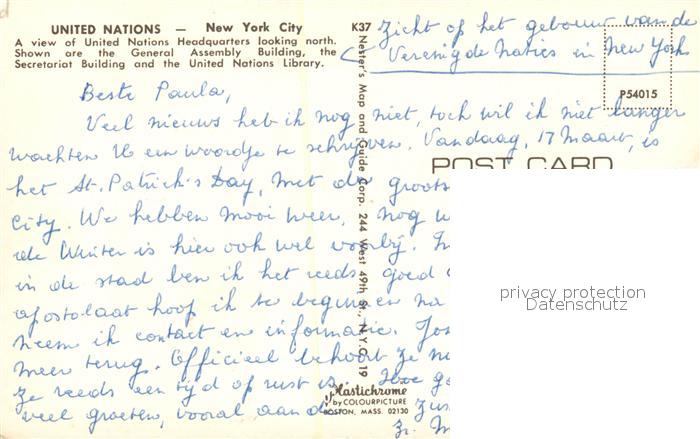 UNITED NATIONS — New York City
A view of United Nations Headquarters looking north.
Shown are the General Assembly Building, the
Secretariat Building and the United Nations Library.
K37
Zicht op het gebouw van de
Verenigde Naties in New York
P54015
POST CARD
Nester's Map and Guide Corp. 244 West 49th St., N.Y.C. 19
Beste Paula,
Veel nieuws heb ik nog niet, toch wil ik niet langer
wachten U een woordje te schrijven. Vandaag, 17 Maart, is
het St. Patrick's Day, met de groots
City. We hebben mooi weer, nog
de Winter is hier ook wel voorbij.
in de stad ben ik het reeds goed
apostolaat hoop ik te beginnen na
neem ik contact en informatie. Jos
meer terug. Officieel behoort ze
ze reeds een tijd op rust is. Hoe
veel groeten, vooral aan
Plastichrome
by COLOURPICTURE
BOSTON, MASS. 02130
privacy protection
Datenschutz